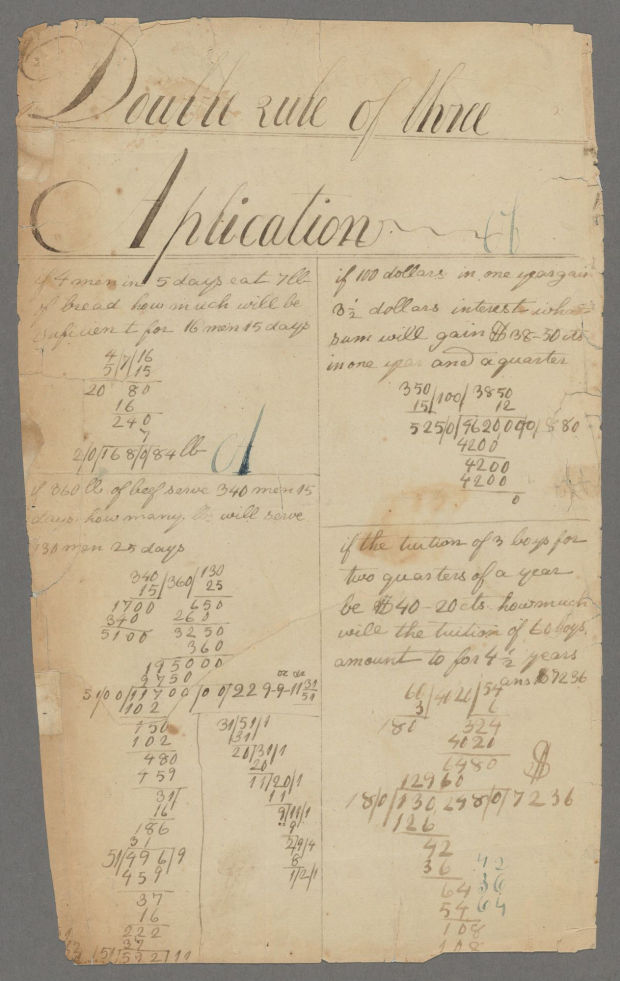 Double rule of three
Aplication
if 4 men in 5 days eat 7 lb
of bread how much will be
sufficient for 16 men 15 days
4 / 7 / 16
5 / 15
20 80
16
240
7
2|0/168|0/84 lb
if 360 lb of beef serve 340 men 15
days how many lb will serve
130 men 25 days
340 / 360 / 130
15 25
1700 650
340 260
5100 3250
360
195000
9750
oz dr
51|00/11700|00/229-9-11 31/51
102
150
102
480
459
31/
16
186
31
51/496/9
459
37
16
222
37
51/592/11
31/51/1
31
20/31/1
20
11/20/1
11
9/11/1
9
2/9/4
8
1/2/1
if 100 dollars in one year gain
3 1/2 dollars interest what
sum will gain $38-50 cts
in one year and a quarter
350 /100/ 3850
15 12
525|0/462000|0/880
4200
4200
4200
0
if the tuition of 3 boys for
two quarters of a year
be $40-20 cts how much
will the tuition of 60 boys
amount to for 4 1/2 years
ans $7236
60 / 4020 / 54
3 6
180 324
4020
6480
12960
$
18|0/130,248|0/7236
126
42
36
64
54
108
108
42
36
64